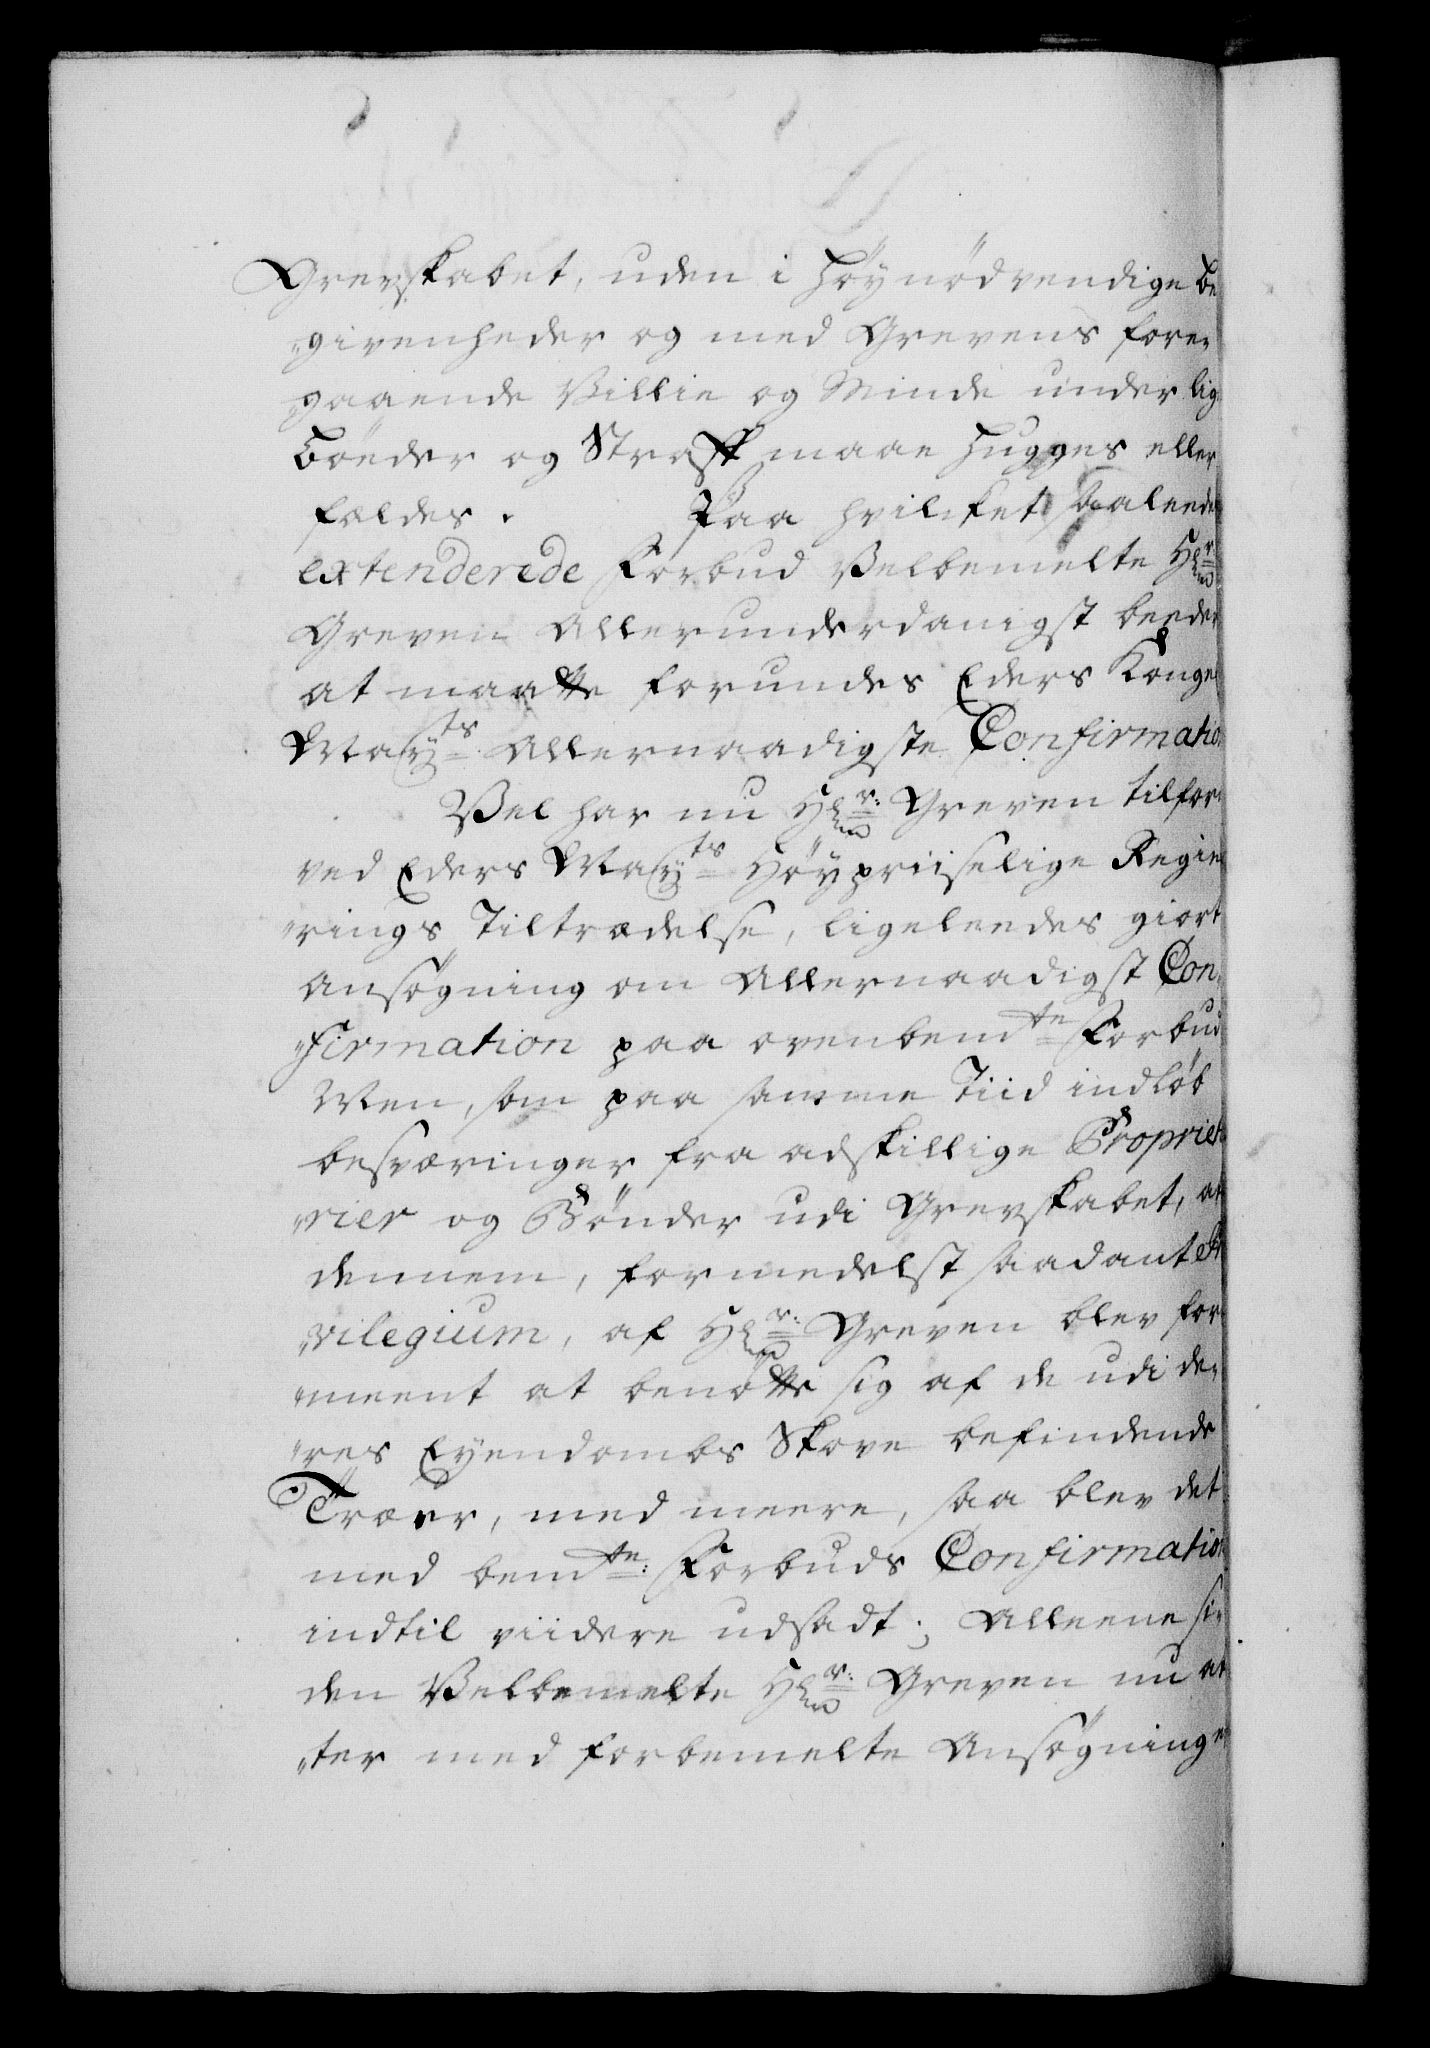 Grevskabet, uden i høynødvendige be
„givenheder og med Grevens fore„
„gaaende Villie og Minde under lig
bøeder og Straff maae hugges eller
fældes. Paa hvilcket saaleede
extenderede Forbud Velbemelte Hr:
Greven Allerunderdanigst beeder
at maatte forundes Eders Konge
Mayts Allernaadigste Confirmatio
Vel har nu Hr: Greven tilforn
ved Eders Mayts Høypriiselige Regie
„rings Tiltrædelse, ligeleedes giort
Ansøgning om Allernaadigst Con„
„firmation paa ovenbemte Forbud
Men, som paa samme Tiid indløb
besværinger fra adskillige Propriet
„rier og Bønder udi Grevskabet, at
dennem, formedelst saadant Pri
„vilegium, af Hr: Greven blev for
„meent at benøtte sig af de udi de„
„res Eyendombs Skove befindende
Træer, med meere, saa blev det
med bemte: Forbuds Confirmation
indtil viidere udsadt; Alleene si„
den Velbemelte Hr: Greven nu at
„ter med forbemelte Ansøgning